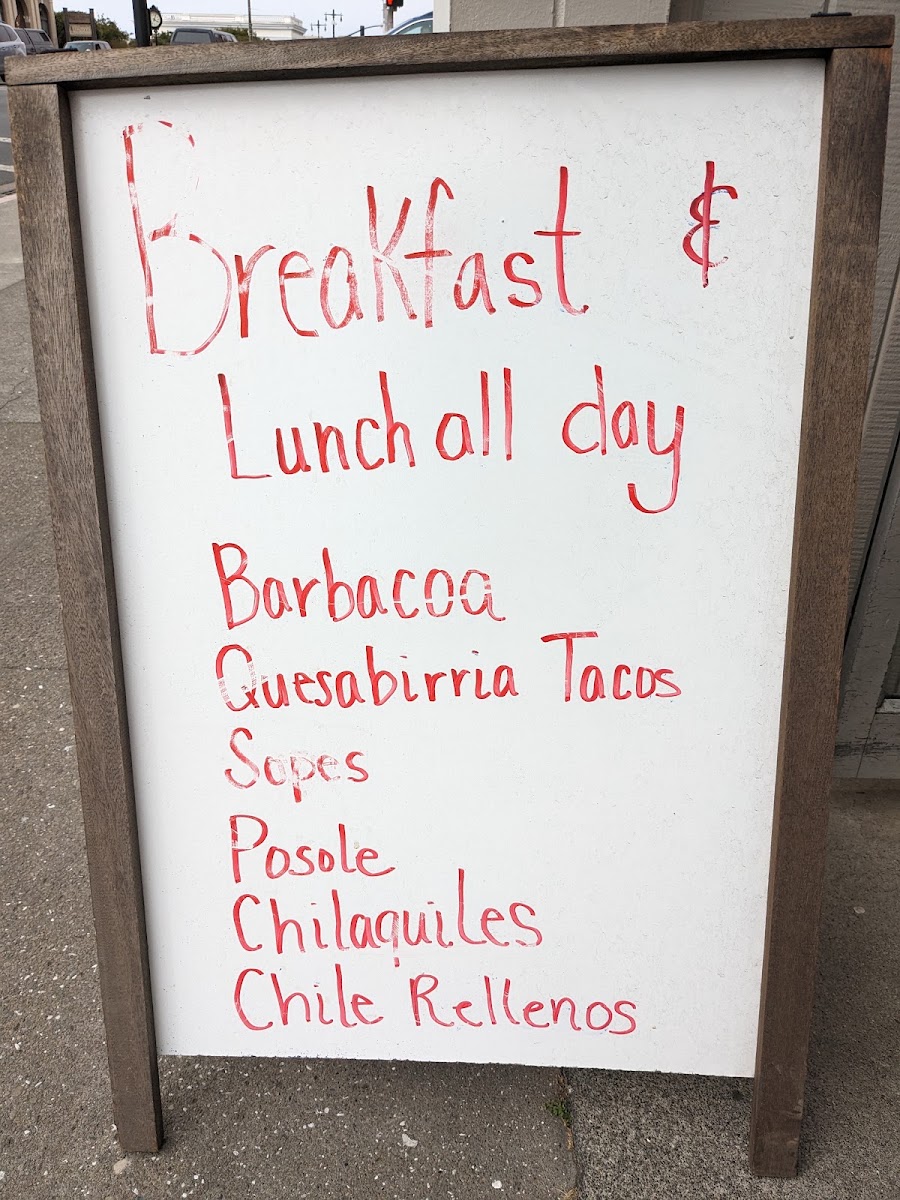 Breakfast &
Lunch all day
Barbacoa
Quesabirria Tacos
Sopes
Posole
Chilaquiles
Chile Rellenos